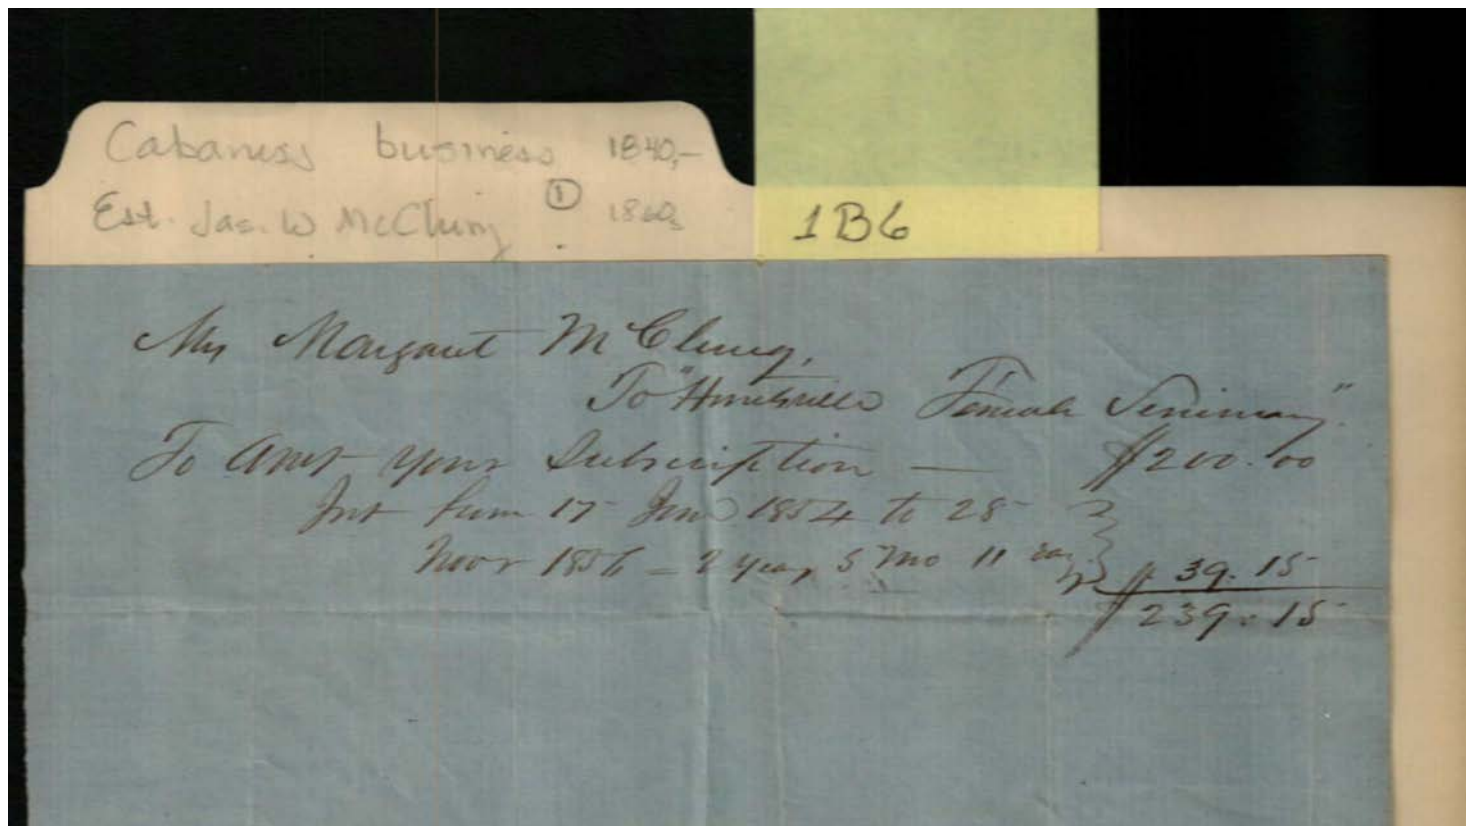 Cabaness business 1840,-
Est. Jas. W McClung ① 1860s
1B6
Mrs Margaret McClung,
To "Huntsville Female Seminary"
To Amt your Subscription — $200.00
Int from 17 June 1854 to 28
Novr 1856 - 2 years 5 Mo 11 days $39.15
$239.15